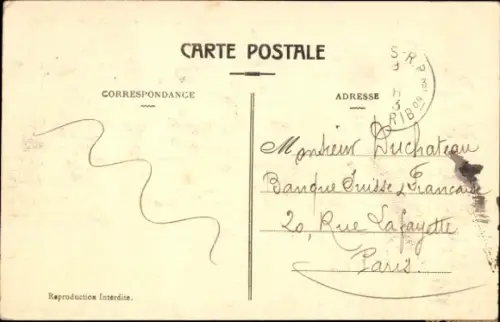 CARTE POSTALE
CORRESPONDANCE
ADRESSE
Monsieur Duchateau
Banque Suisse & Française
20, Rue Lafayette
Paris.
Reproduction Interdite.